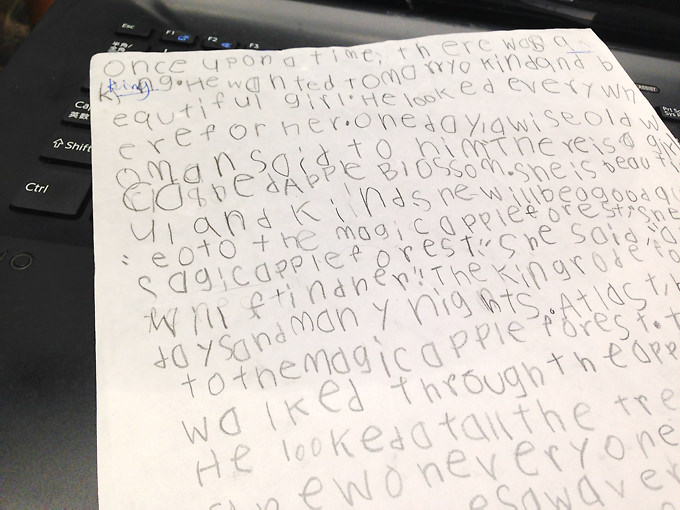 Esc
F1
F2
F3
半角/
全角
Caps
英数
⇧Shift
Ctrl
ASSIST
once upon a time, there was a
king
king. He wanted to marry a kind and b
eautiful girl. He looked everywh
ere for her. one day, a wise old w
oman said to him There is a girl
called Apple Blossom. she is beautif
ul and kind she will be a good
eo to the magic apple forest, she
sagic apple forest." she said,
will find her". The King rode
days and many nights. At last,
to the magic apple forest.
walked through the app
He looked at all the tre
ew on every one
saw a ver